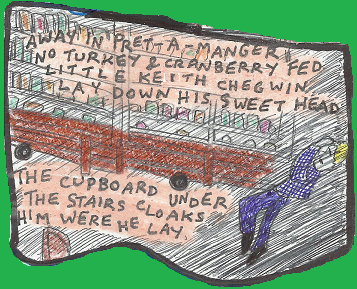 AWAY IN PRETTA-MANGER
NO TURKEY & CRANBERRY FED
LITTLE KEITH CHEGWIN
LAY DOWN HIS SWEET HEAD
THE CUPBOARD UNDER
THE STAIRS CLOAKS
HIM WERE HE LAY.